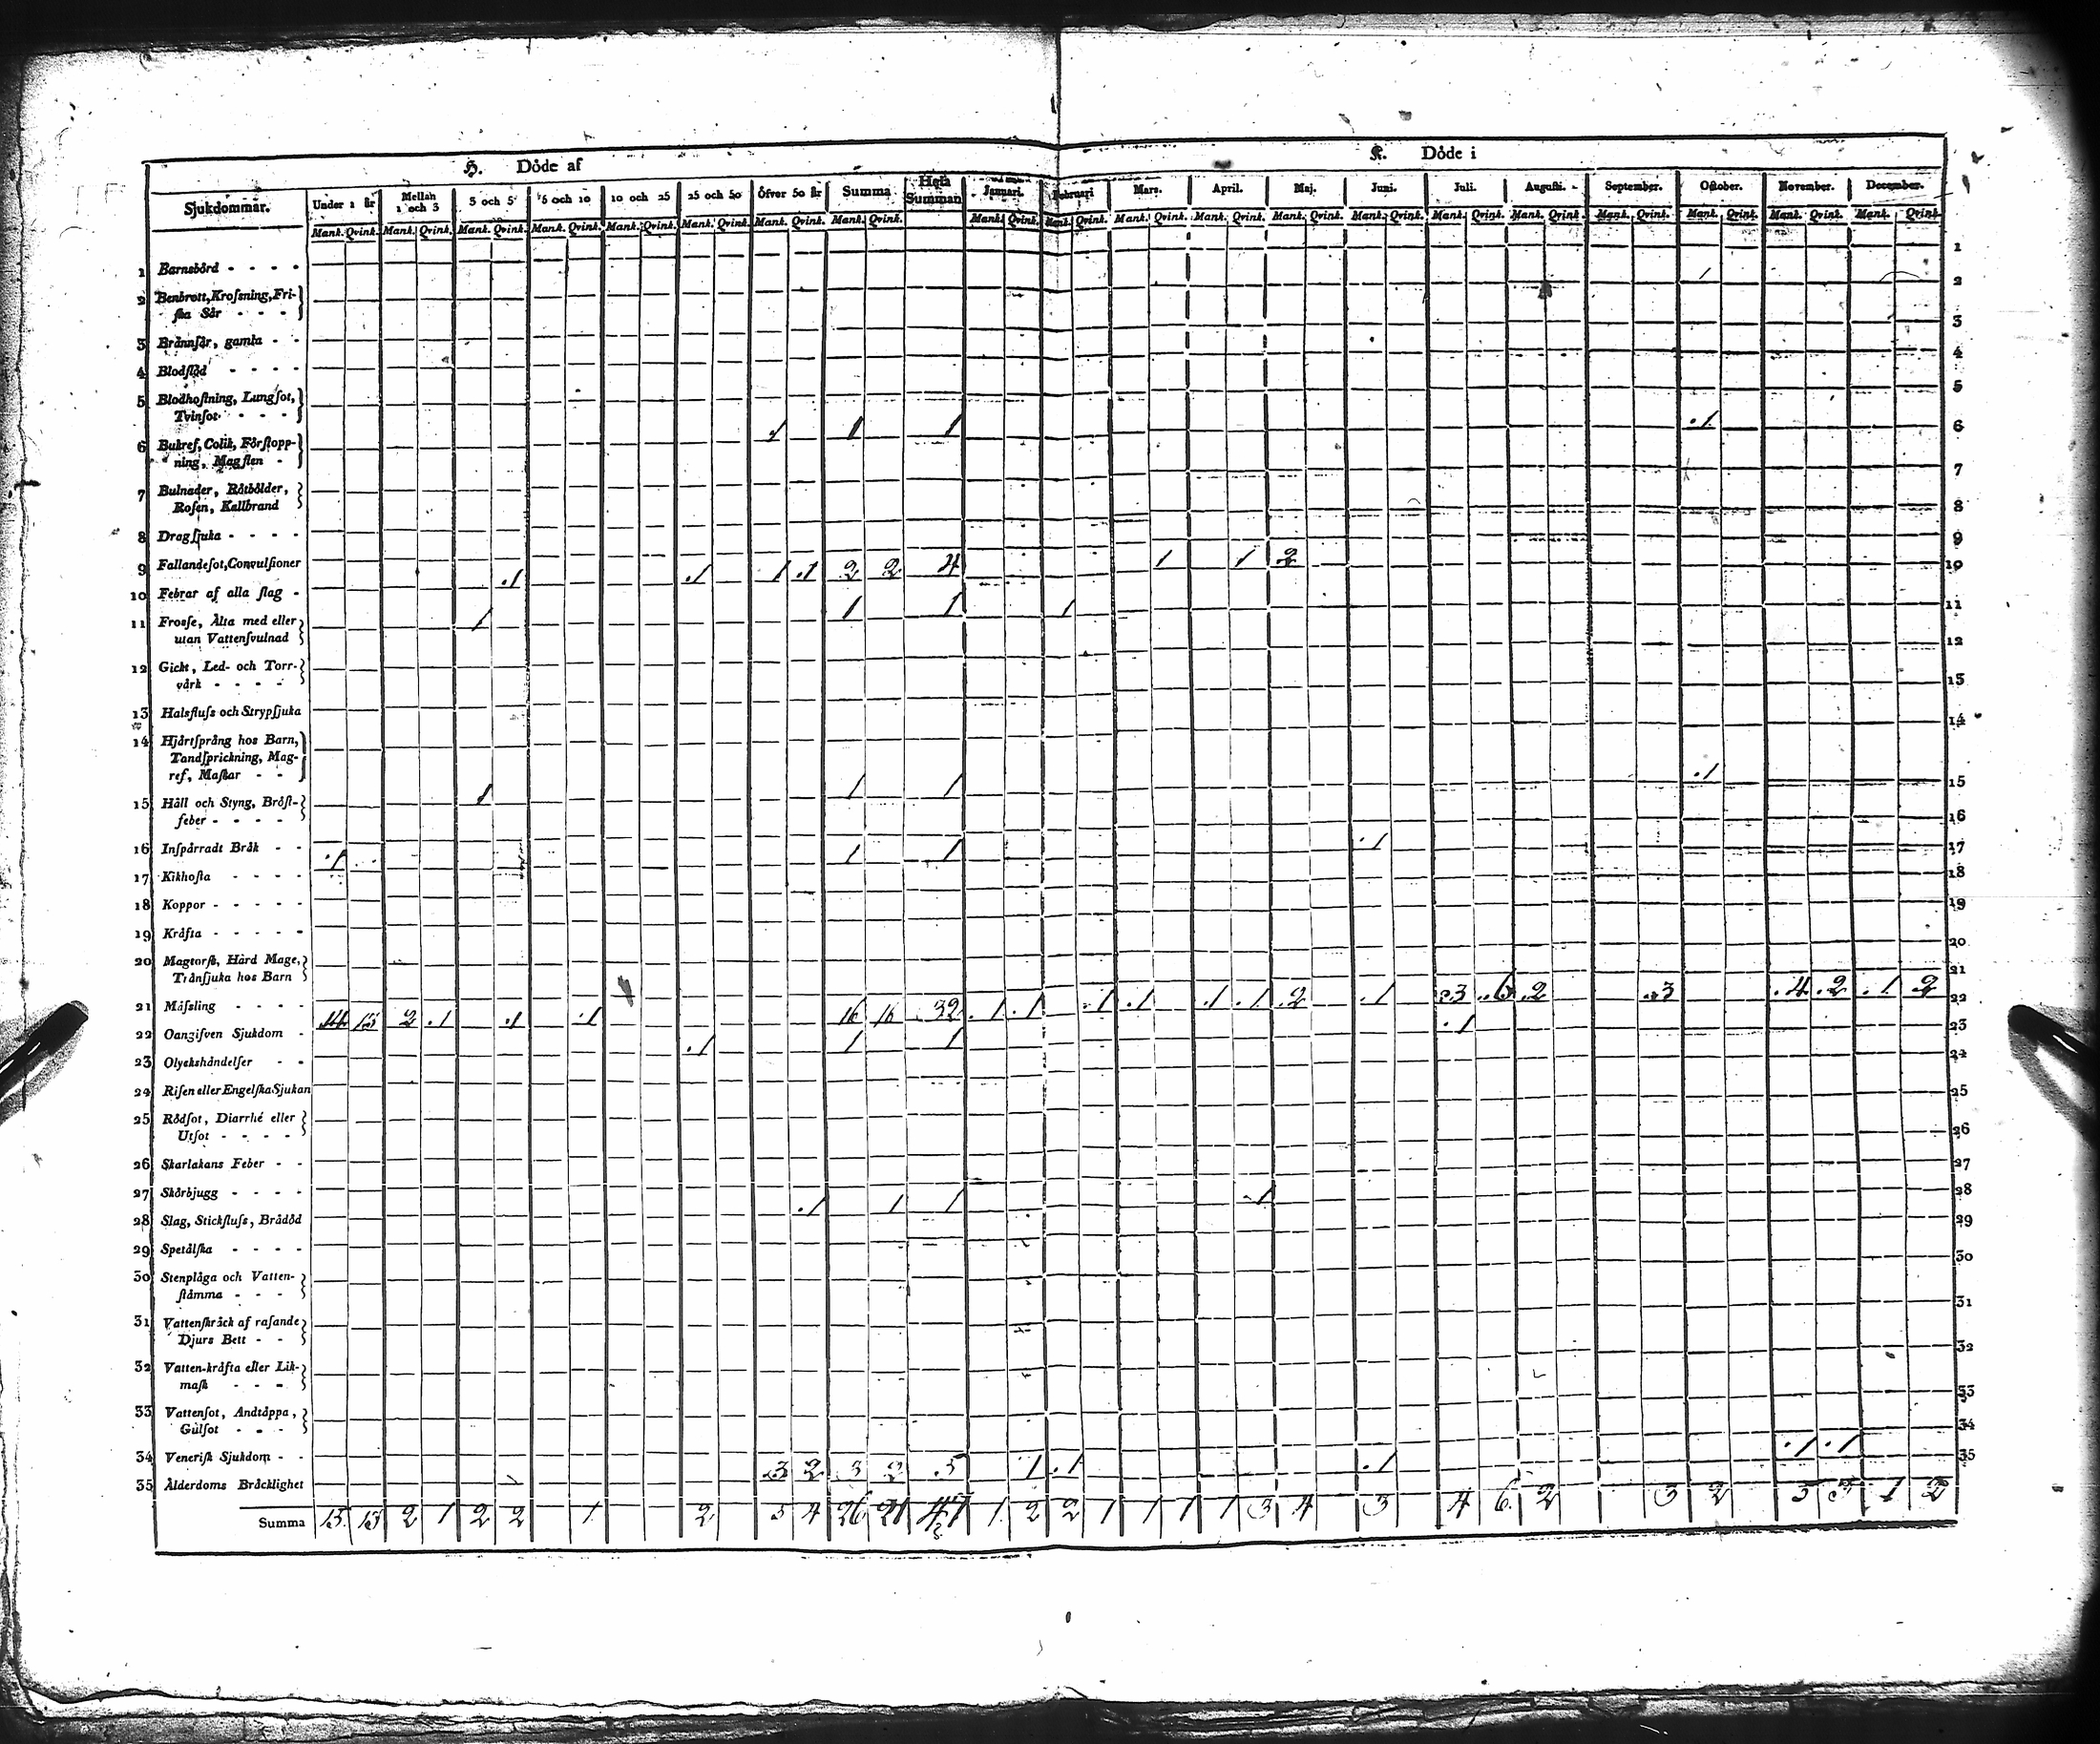 H. Döde af
K. Döde i
Sjukdommar. Under 1 år Mellan 1 och 3 3 och 5 5 och 10 10 och 25 25 och 50 Öfver 50 år Summa Hela Summan Januari. Februari Mars. April. Maj. Juni. Juli. Augusti. September. October. November. December.
Mank. Qvink. Mank. Qvink. Mank. Qvink. Mank. Qvink. Mank. Qvink. Mank. Qvink. Mank. Qvink. Mank. Qvink. Mank. Qvink. Mank. Qvink. Mank. Qvink. Mank. Qvink. Mank. Qvink. Mank. Qvink. Mank. Qvink. Mank. Qvink. Mank. Qvink. Mank. Qvink. Mank. Qvink. Mank. Qvink.
1 Barnsbörd - - - - 1
2 Benbrott, Krosning, Fri-
ska Sår - - - 2
3 Brännsår, gamla - - 3
4 Blodslöd - - - - 4
5 Blodhostning, Lungsot,
Tvinsot - - - 5
6 Bukref, Colik, Förstopp-
ning, Magsten - 1 1 1 1 6
7 Bulnader, Rötbölder,
Rosen, Kallbrand 7
8 Dragsjuka - - - - 8
9 Fallandesot, Convulsioner 9
10 Febrar af alla slag - 1 1 1 1 2 2 4 1 1 2 10
11 Frosse, Älta med eller
utan Vattensvulnad 1 1 1 1 11
12 Gickt, Led- och Torr-
värk - - - - 12
13 Halsfluss och Strypsjuka 13
14 Hjärtsprång hos Barn,
Tandsprickning, Mag-
ref, Maskar - - 14
15 Håll och Styng, Bröst-
feber - - - - 1 1 1 1 15
16 Inspärradt Bråk - - 16
17 Kikhosta - - - - 1 1 1 1 17
18 Koppor - - - - - 18
19 Kräfta - - - - - 19
20 Magtorsk, Hård Mage,
Tränsjuka hos Barn 20
21 Mässling - - - - 21
22 Oangifven Sjukdom - 14 13 2 1 1 1 16 16 32 1 1 1 1 1 1 2 1 3 6 2 3 4 2 1 2 22
23 Olyckshändelser - - 1 1 1 1 23
24 Risen eller Engelska Sjukan 24
25 Rödsot, Diarrhé eller
Utsot - - - - 25
26 Skarlakans Feber - - 26
27 Skörbjugg - - - - 27
28 Slag, Stickfluss, Brådöd 1 1 1 1 28
29 Spetälska - - - - 29
30 Stenplåga och Vatten-
stämma - - - 30
31 Vattenskräck af rasande
Djurs Bett - - 31
32 Vatten-kräfta eller Lik-
mask - - - 32
33 Vattensot, Andtäppa,
Gulsot - - - 33
34 Venerisk Sjukdom - - 34
35 Ålderdoms Bräcklighet 3 2 3 2 5 1 1 1 1 1 35
Summa 15 13 2 1 2 2 1 2 5 4 26 21 47 1 2 2 1 1 1 1 3 4 3 4 6 2 3 2 5 3 1 2